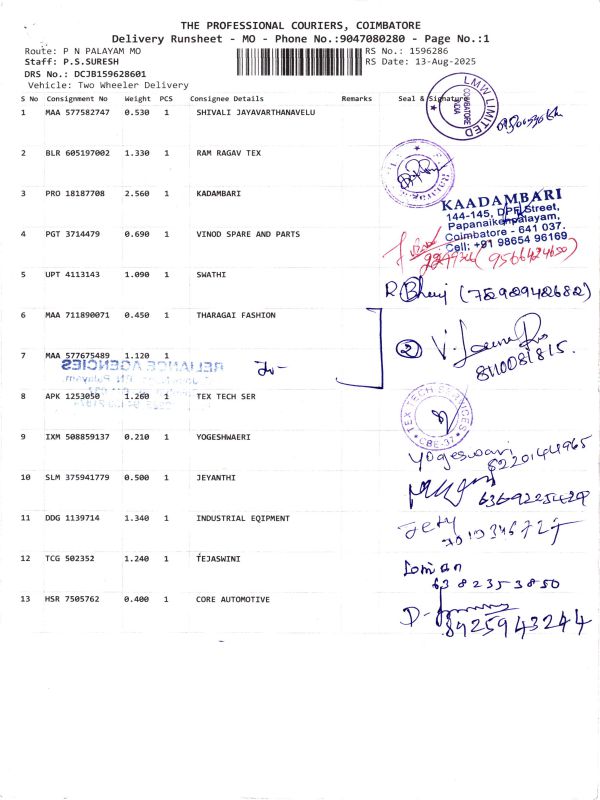 THE PROFESSIONAL COURIERS, COIMBATORE
Delivery Runsheet - MO - Phone No.:9047080280 - Page No.:1
Route: P N PALAYAM MO
RS No.: 1596286
Staff: P.S.SURESH
RS Date: 13-Aug-2025
DRS No.: DCJB159628601
Vehicle: Two Wheeler Delivery
S No Consignment No Weight PCS Consignee Details Remarks Seal & Signature
1 MAA 577582747 0.530 1 SHIVALI JAYAVARTHANAVELU
LMW LIMITED
COIMBATORE
INDIA
2 BLR 605197002 1.330 1 RAM RAGAV TEX
3 PRO 18187708 2.560 1 KADAMBARI
KAADAMBARI
144-145, DPF Street,
Papanaikenpalayam,
Coimbatore - 641 037.
Cell: +91 98654 96169
4 PGT 3714479 0.690 1 VINOD SPARE AND PARTS
5 UPT 4113143 1.090 1 SWATHI
(75290942682)
6 MAA 711890071 0.450 1 THARAGAI FASHION
2
7 MAA 577675489 1.120 1
8110081815.
RELIANCE AGENCIES
8 APK 1253050 1.260 1 TEX TECH SER
TEX TECH SERVICES
CBE-37
9 IXM 508859137 0.210 1 YOGESHWAERI
Yogeswari
8220144965
10 SLM 375941779 0.500 1 JEYANTHI
6369225429
11 DDG 1139714 1.340 1 INDUSTRIAL EQIPMENT
12 TCG 502352 1.240 1 TEJASWINI
6382353850
13 HSR 7505762 0.400 1 CORE AUTOMOTIVE
8925943244